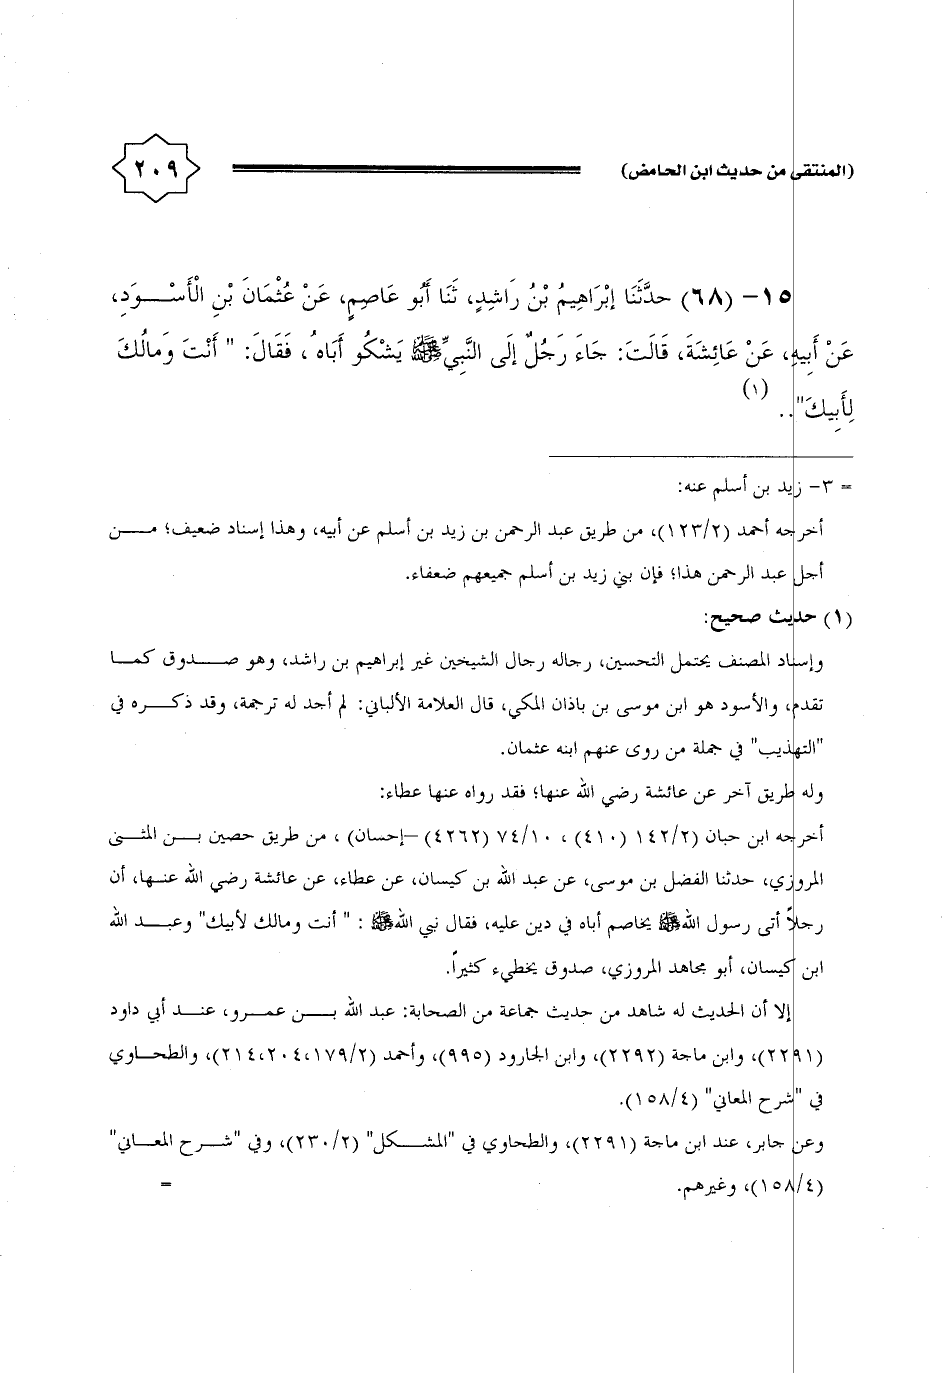 (المنتقى من حديث ابن الحامض)
٢٠٩
١٥- (٦٨) حدَّثَنَا إبْرَاهِيمُ بْنُ رَاشِدٍ، ثَنَا أَبُو عَاصِمٍ، عَنْ عُثْمَانَ بْنِ الْأَسْوَدِ،
عَنْ أَبِيهِ، عَنْ عَائِشَةَ، قَالَتْ: جَاءَ رَجُلٌ إلَى النَّبِيِّ ﷺ يَشْكُو أَبَاهُ، فَقَالَ: "أَنْتَ وَمَالُكَ
لِأَبِيكَ".. (١)
= ٣- زيد بن أسلم عنه:
أخرجه أحمد (١٢٣/٢)، من طريق عبد الرحمن بن زيد بن أسلم عن أبيه، وهذا إسناد ضعيف؛ من
أجل عبد الرحمن هذا؛ فإن بني زيد بن أسلم جميعهم ضعفاء.
(١) حديث صحيح:
وإسناد المصنف يحتمل التحسين، رجاله رجال الشيخين غير إبراهيم بن راشد، وهو صدوق كما
تقدم، والأسود هو ابن موسى بن باذان المكي، قال العلامة الألباني: لم أجد له ترجمة، وقد ذكره في
"التهذيب" في جملة من روى عنهم ابنه عثمان.
وله طريق آخر عن عائشة رضي الله عنها؛ فقد رواه عنها عطاء:
أخرجه ابن حبان (١٤٢/٢ (٤١٠) ، ٧٤/١٠ (٤٢٦٢) –إحسان) ، من طريق حصين بن المثنى
المروزي، حدثنا الفضل بن موسى، عن عبد الله بن كيسان، عن عطاء، عن عائشة رضي الله عنها، أن
رجلاً أتى رسول الله ﷺ يخاصم أباه في دين عليه، فقال نبي الله ﷺ : "أنت ومالك لأبيك" وعبد الله
ابن كيسان، أبو مجاهد المروزي، صدوق يخطيء كثيراً.
إلا أن الحديث له شاهد من حديث جماعة من الصحابة: عبد الله بن عمرو، عند أبي داود
(٢٢٩١)، وابن ماجة (٢٢٩٢)، وابن الجارود (٩٩٥)، وأحمد (١٧٩/٢،٢٠٤،٢١٤)، والطحاوي
في "شرح المعاني" (١٥٨/٤).
وعن جابر، عند ابن ماجة (٢٢٩١)، والطحاوي في "المشكل" (٢٣٠/٢)، وفي "شرح المعاني"
(١٥٨/٤)، وغيرهم. =